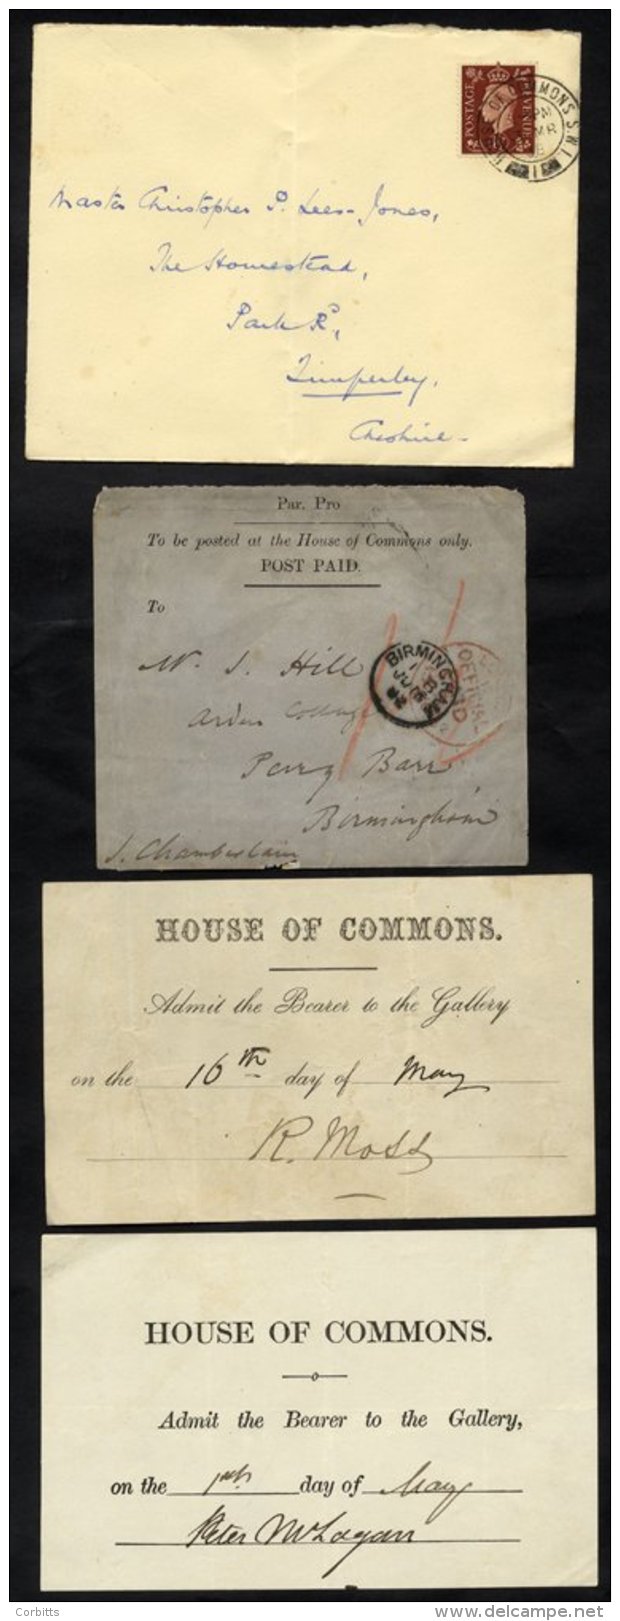 POSTAGE REVENUE
COMMONS S.W.1.
PM
MR
Master Christopher P. Lees-Jones,
The Homestead,
Park Rd,
Timperley,
Cheshire-
Par. Pro
To be posted at the House of Commons only.
POST PAID.
To
BIRMINGHAM
OFFICIAL
PAID
W. J. Hill
Arden Cottage
Perry Barr
Birmingham
J. Chamberlain
HOUSE OF COMMONS.
Admit the Bearer to the Gallery
on the 16th day of May
R. Moss
HOUSE OF COMMONS.
Admit the Bearer to the Gallery,
on the day of May
Peter McLagan
Corbitts
delcampe.net